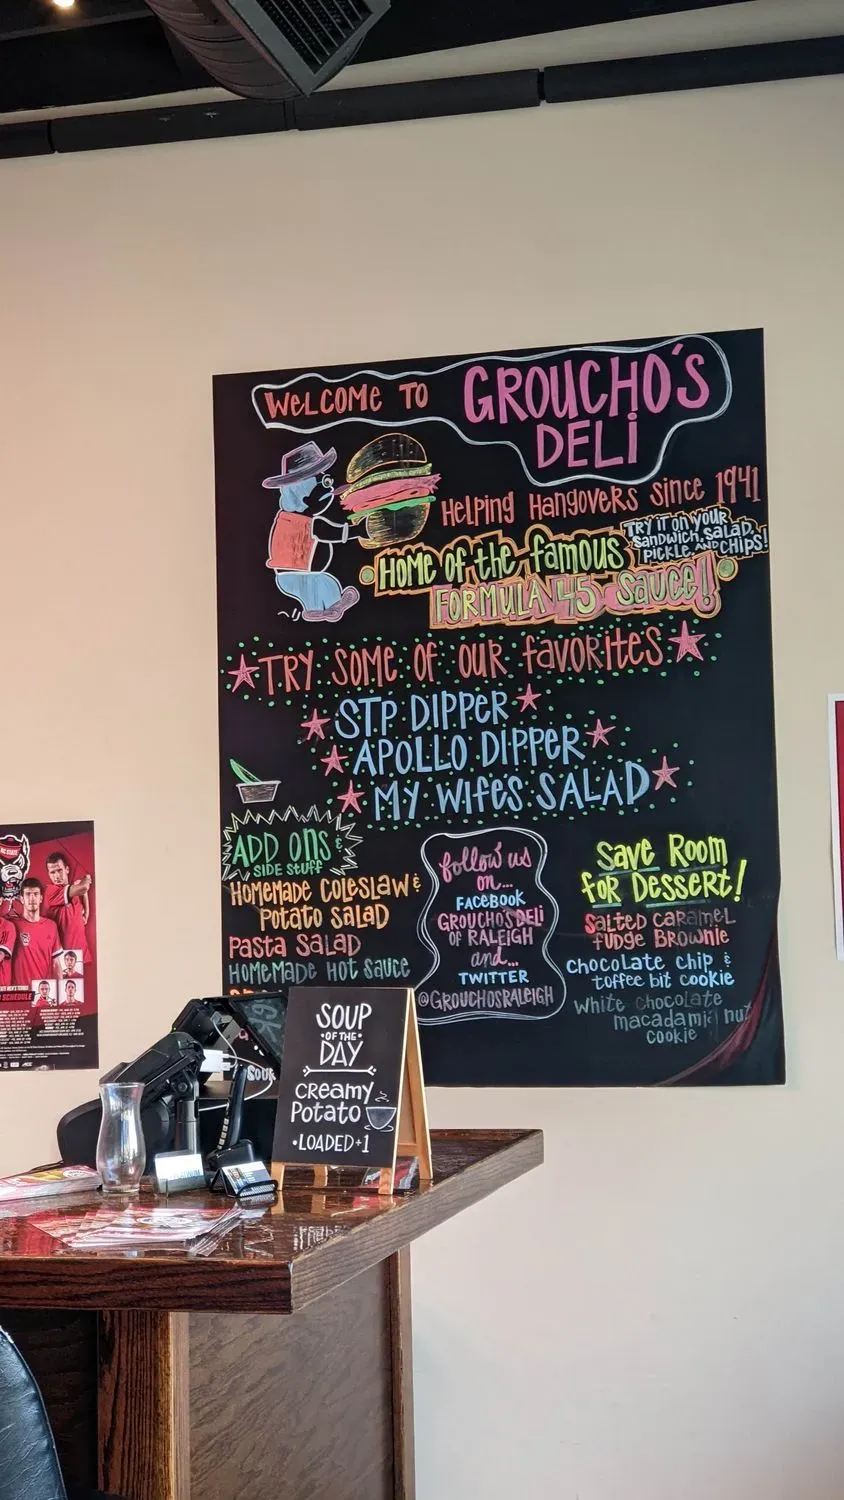 WELCOME TO GROUCHO'S
DELI
HELPING HANGOVERS SINCE 1941
TRY IT ON YOUR
SANDWICH, SALAD,
PICKLE, AND CHIPS!
HOME OF THE FAMOUS
FORMULA 45 SAUCE!
TRY SOME OF OUR FAVORITES
STP DIPPER
APOLLO DIPPER
MY WIFE'S SALAD
ADD ONS &
SIDE STUFF
HOMEMADE COLESLAW &
POTATO SALAD
PASTA SALAD
HOMEMADE HOT SAUCE
follow us
on...
FACEBOOK
GROUCHO'S DELI
OF RALEIGH
and...
TWITTER
@GROUCHOSRALEIGH
Save Room
for Dessert!
SALTED CARAMEL
FUDGE BROWNIE
CHOCOLATE CHIP &
TOFFEE BIT COOKIE
WHITE CHOCOLATE
MACADAMIA NUT
COOKIE
SOUP
OF THE
DAY
CREAMY
POTATO
•LOADED+1
SOUP
NC STATE
SCHEDULE